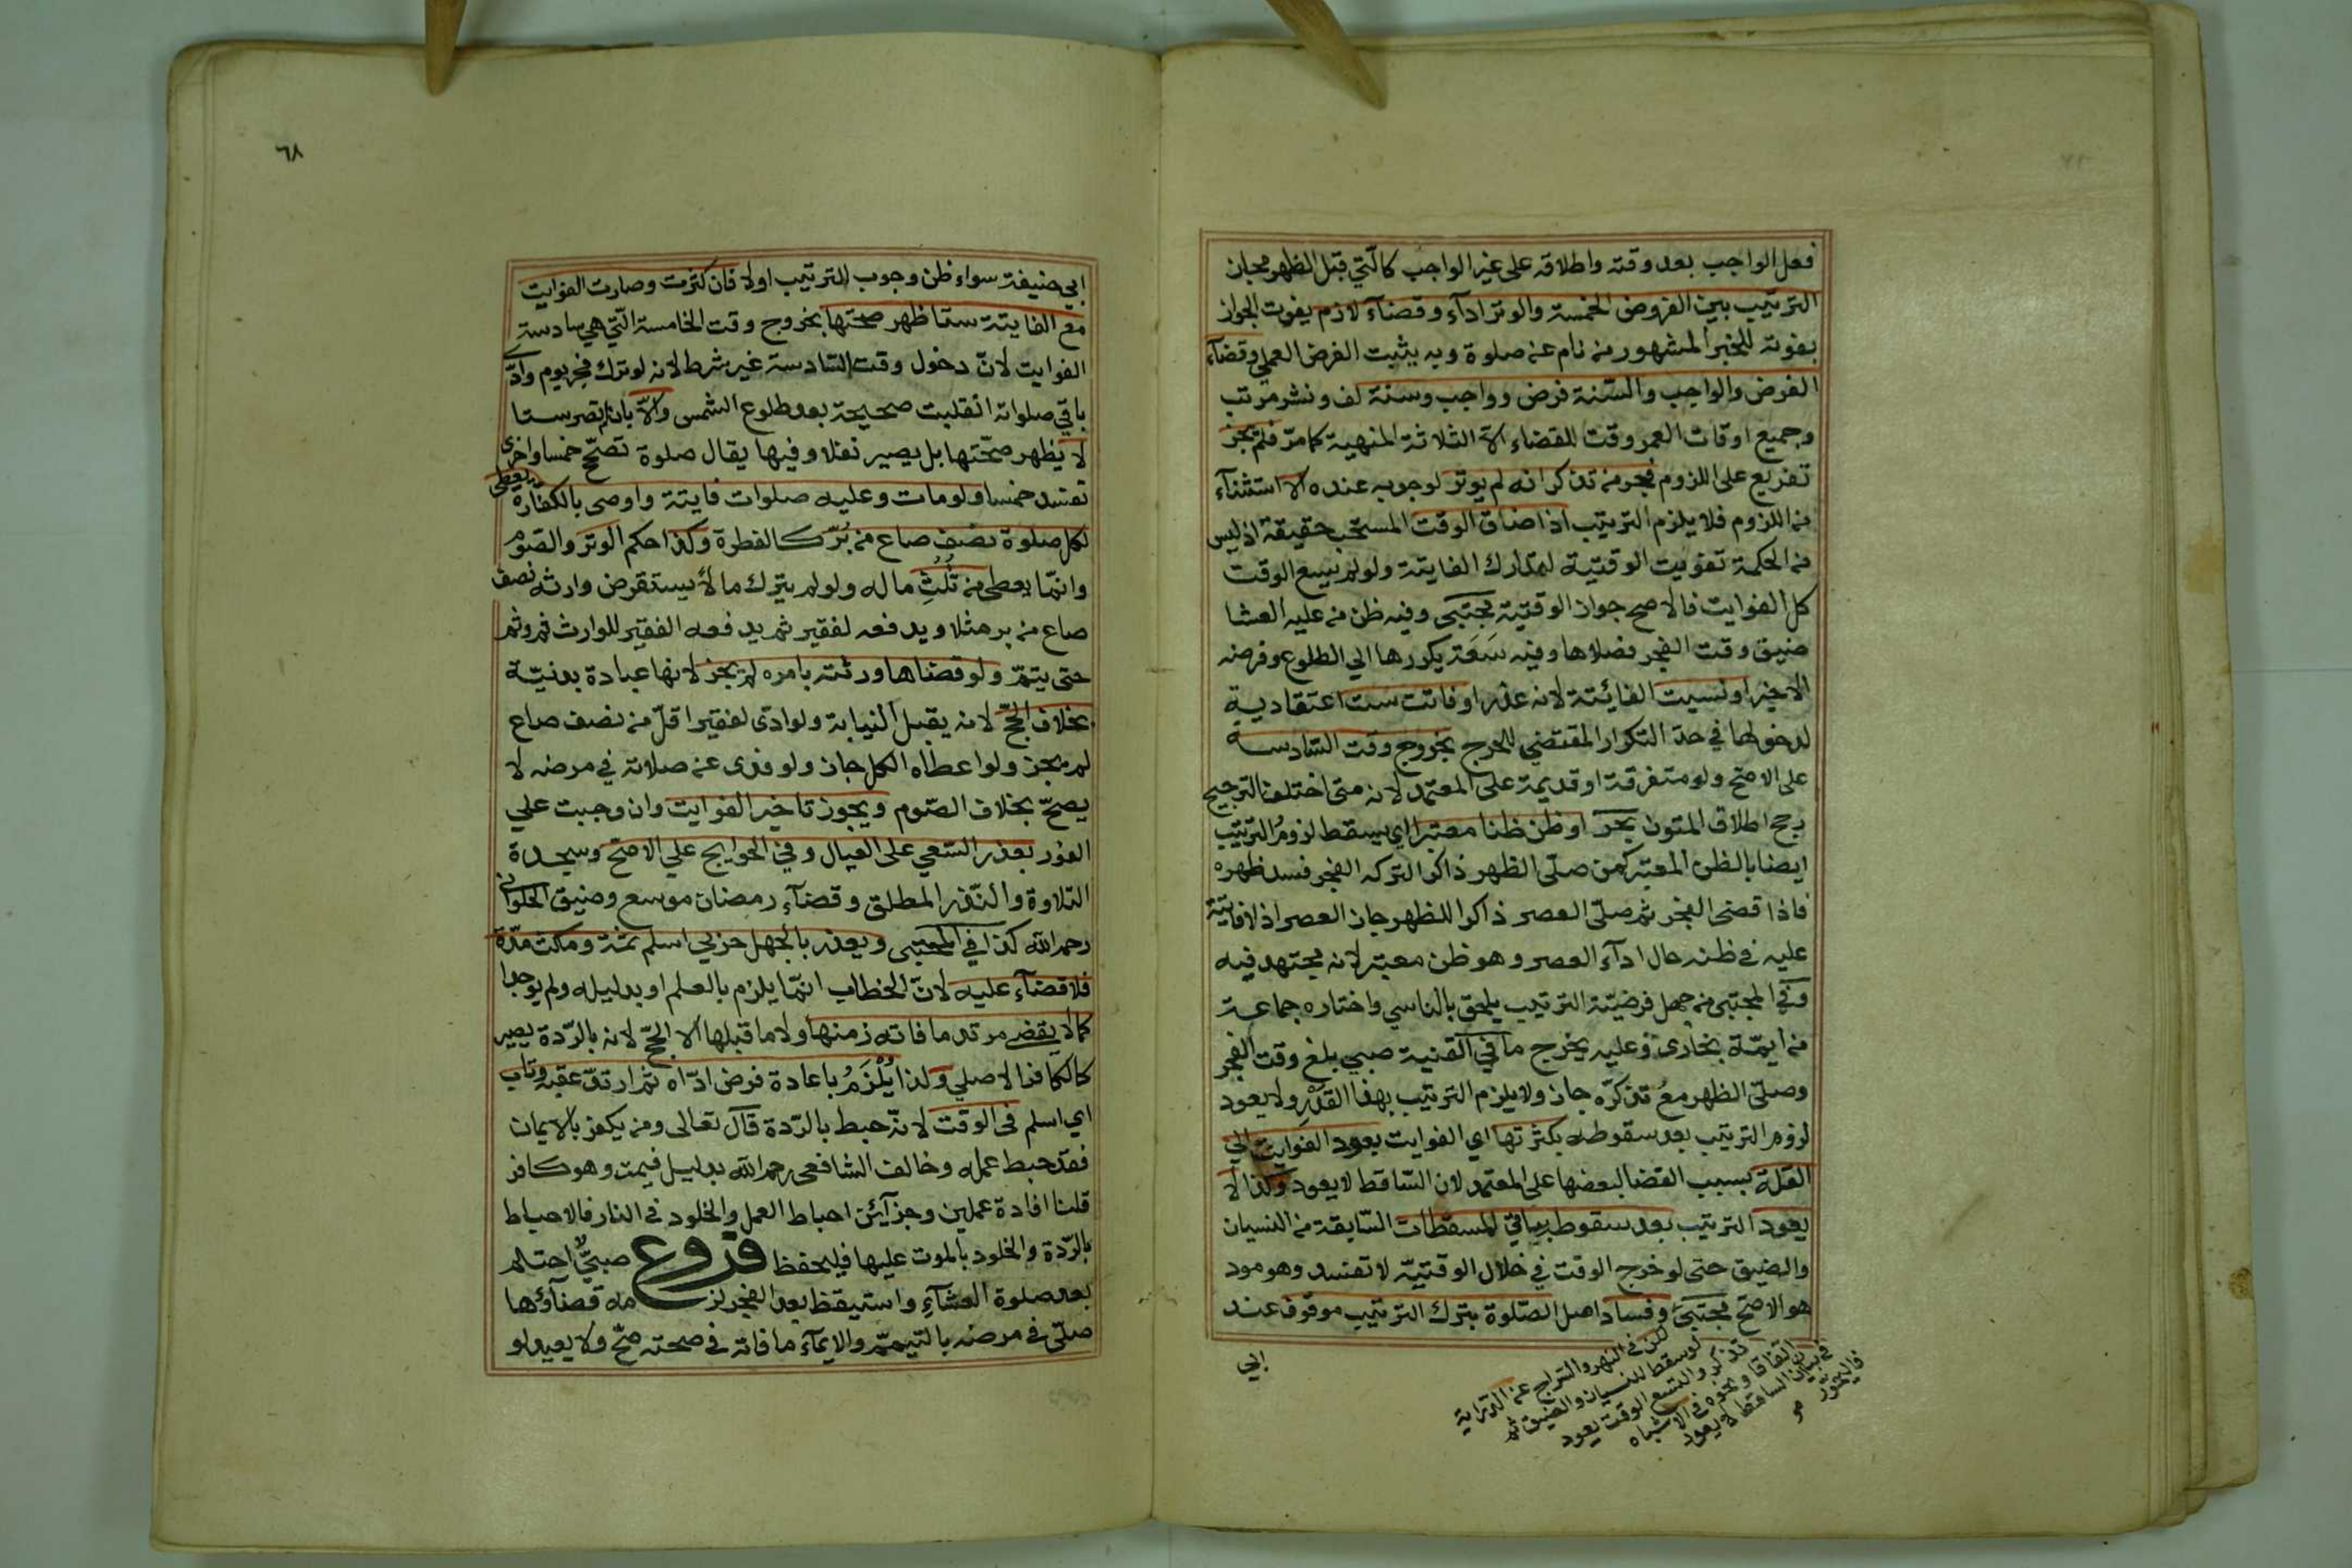 فعل الواجب بعد وقته واطلاقه على غير الواجب كالتي قبل الظهر مجاز
الترتيب بين الفروض الخمسة والوتر ادآء وقضآء لازم يفوت الجواز
بفوته للخبر المشهور من نام عن صلوة وبه يثبت الفرض العملي وقضآء
الفرض والواجب والسّنة فرض وواجب وسنة لف ونشر مرتب
وجميع اوقات العمر وقت للقضاء الآ الثلاثة المنهية كما مرّ فلم يجز
تفريع على اللزوم فجر من تذكر انه لم يوتر لوجوبه عنده الا استثنآء
من اللزوم فلا يلزم الترتيب اذا ضاق الوقت المستحب حقيقة اذ ليس
من الحكمة تفويت الوقتية لتدارك الفايتة ولو لم يسع الوقت
كل الفوايت فالاصح جواز الوقتية مجتبى وفيه ظن من عليه العشا
ضيق وقت الفجر فصلاها وفيه سَعَة يكررها الي الطلوع وفرضه
الاخير او نسيت الفائتة لانه عذر او فاتت ست اعتقادية
لدخولها في حدّ التكرار المقتضي للحرج بخروج وقت السّادسة
على الاصّح ولو متفرقة او قديمة على المعتمد لانه متى اختلف الترجيح
رجح اطلاق المتون بحر او ظن ظنا معتبرا اي يسقط لزوم الترتيب
ايضا بالظن المعتبر كمن صلّى الظهر ذاكرا لتركه الفجر فسد ظهره
فاذا قضى الفجر ثم صلّى العصر ذاكرا للظهر جاز العصر اذ لا فايتة
عليه في ظنه حال ادآء العصر وهو ظن معتبر لانه مجتهد فيه
وفي المجتبى من جهل فرضيّة الترتيب يلحق بالناسي واختاره جماعة
من ايمّة بخارى وعليه يخرج ما في القنية صبي بلغ وقت الفجر
وصلّى الظهر مع تذكرّه جاز ولا يلزم الترتيب بهذا القدْرِ ولا يعود
لزوم الترتيب بعد سقوطه بكثرتها اي الفوايت بعود الفوايت الي
القلة بسبب القضا لبعضها على المعتمد لان السّاقط لا يعود وكذا لا
يعود الترتيب بعد سقوط بباقي المسقطات السّابقة من النسيان
والضيق حتى لو خرج الوقت في خلال الوقتيّة لا تفسد وهو مود
هو الاصّح مجتبى وفساد اصل الصّلوة بترك الترتيب موقوف عند
ابي
لكن في النهر والسّراج عن الدّراية
لو سقط للنسيان والضيق ثم
تذكر واتسع الوقت يعود
اتفاقا ونحوه في الاشباه
في بيان الساقط لا يعود
فاليحرّر
٦٨
ابي حنيفة سواء ظن وجوب الترتيب اولا فان كثرت وصارت الفوايت
مع الفايتة ستا ظهر صحتها بخروج وقت الخامسة التّي هي سادسة
الفوايت لانّ دخول وقت السّادسة غير شرط لانه لو ترك فجر يوم وادّى
باقي صلواته انقلبت صحيحة بعد طلوع الشمس والاّ بان لم تصر ستا
لا يظهر صحّتها بل يصير نفلا وفيها يقال صلوة تصحّح خمسا واخرى
تفسد خمسا ولو مات وعليه صلوات فايتة واوصى بالكفّارة يعطى
لكل صلوة نصف صاع من بُرّ كالفطرة وكذا حكم الوتر والصّوم
وانّما يعطى من ثُلُثِ ماله ولو لم يترك مالاً يستقرض وارثه نصف
صاع من بر مثلا ويدفعه لفقير ثم يدفعه الفقير للوارث ثم وثم
حتى يتمّ ولو قضاها ورثته بامره لم يجز لانها عبادة بدنيّة
بخلاف الحجّ لانه يقبل النيابة ولو ادّى لفقير اقلّ من نصف صاع
لم يجز ولو اعطاه الكل جاز ولو فدى عن صلاته في مرضه لا
يصحّ بخلاف الصّوم ويجوز تاخير الفوايت وان وجبت علي
الفور بعذر السّعي على العيال وفي الحوايج علي الاصّح وسجدة
التلاوة والنّذر المطلق وقضآء رمضان موسع وضيق الحلواني
رحمه الله كذا في المجتبى ويعذر بالجهل حربي اسلم ثمّة ومكث مدّة
فلا قضآء عليه لانّ الخطاب انّما يلزم بالعلم او بدليله ولم يوجدا
كما لا يقضي مرتد ما فاته زمنها ولا ما قبلها الا الحجّ لانه بالرّدة يصير
كالكافر الاصلي ولذا يُلْزَمُ باعادة فرض ادّاه ثم ارتدّ عقبه وتاب
اي اسلم في الوقت لانّه حبط بالرّدة قال تعالى ومن يكفر بالايمان
فقد حبط عمله وخالف الشافعي رحمه الله بدليل فيمت وهو كافر
قلنا افادة عملين وجزآئن احباط العمل والخلود في النار فالاحباط
بالرّدة والخلود بالموت عليها فليحفظ فروع صبيٌّ احتلم
بعد صلوة العشآءِ واستيقظ بعد الفجر لزمه قضآؤها
صلّى في مرضه بالتيممّ والايمآء ما فاته في صحته صّح ولا يعيد لو